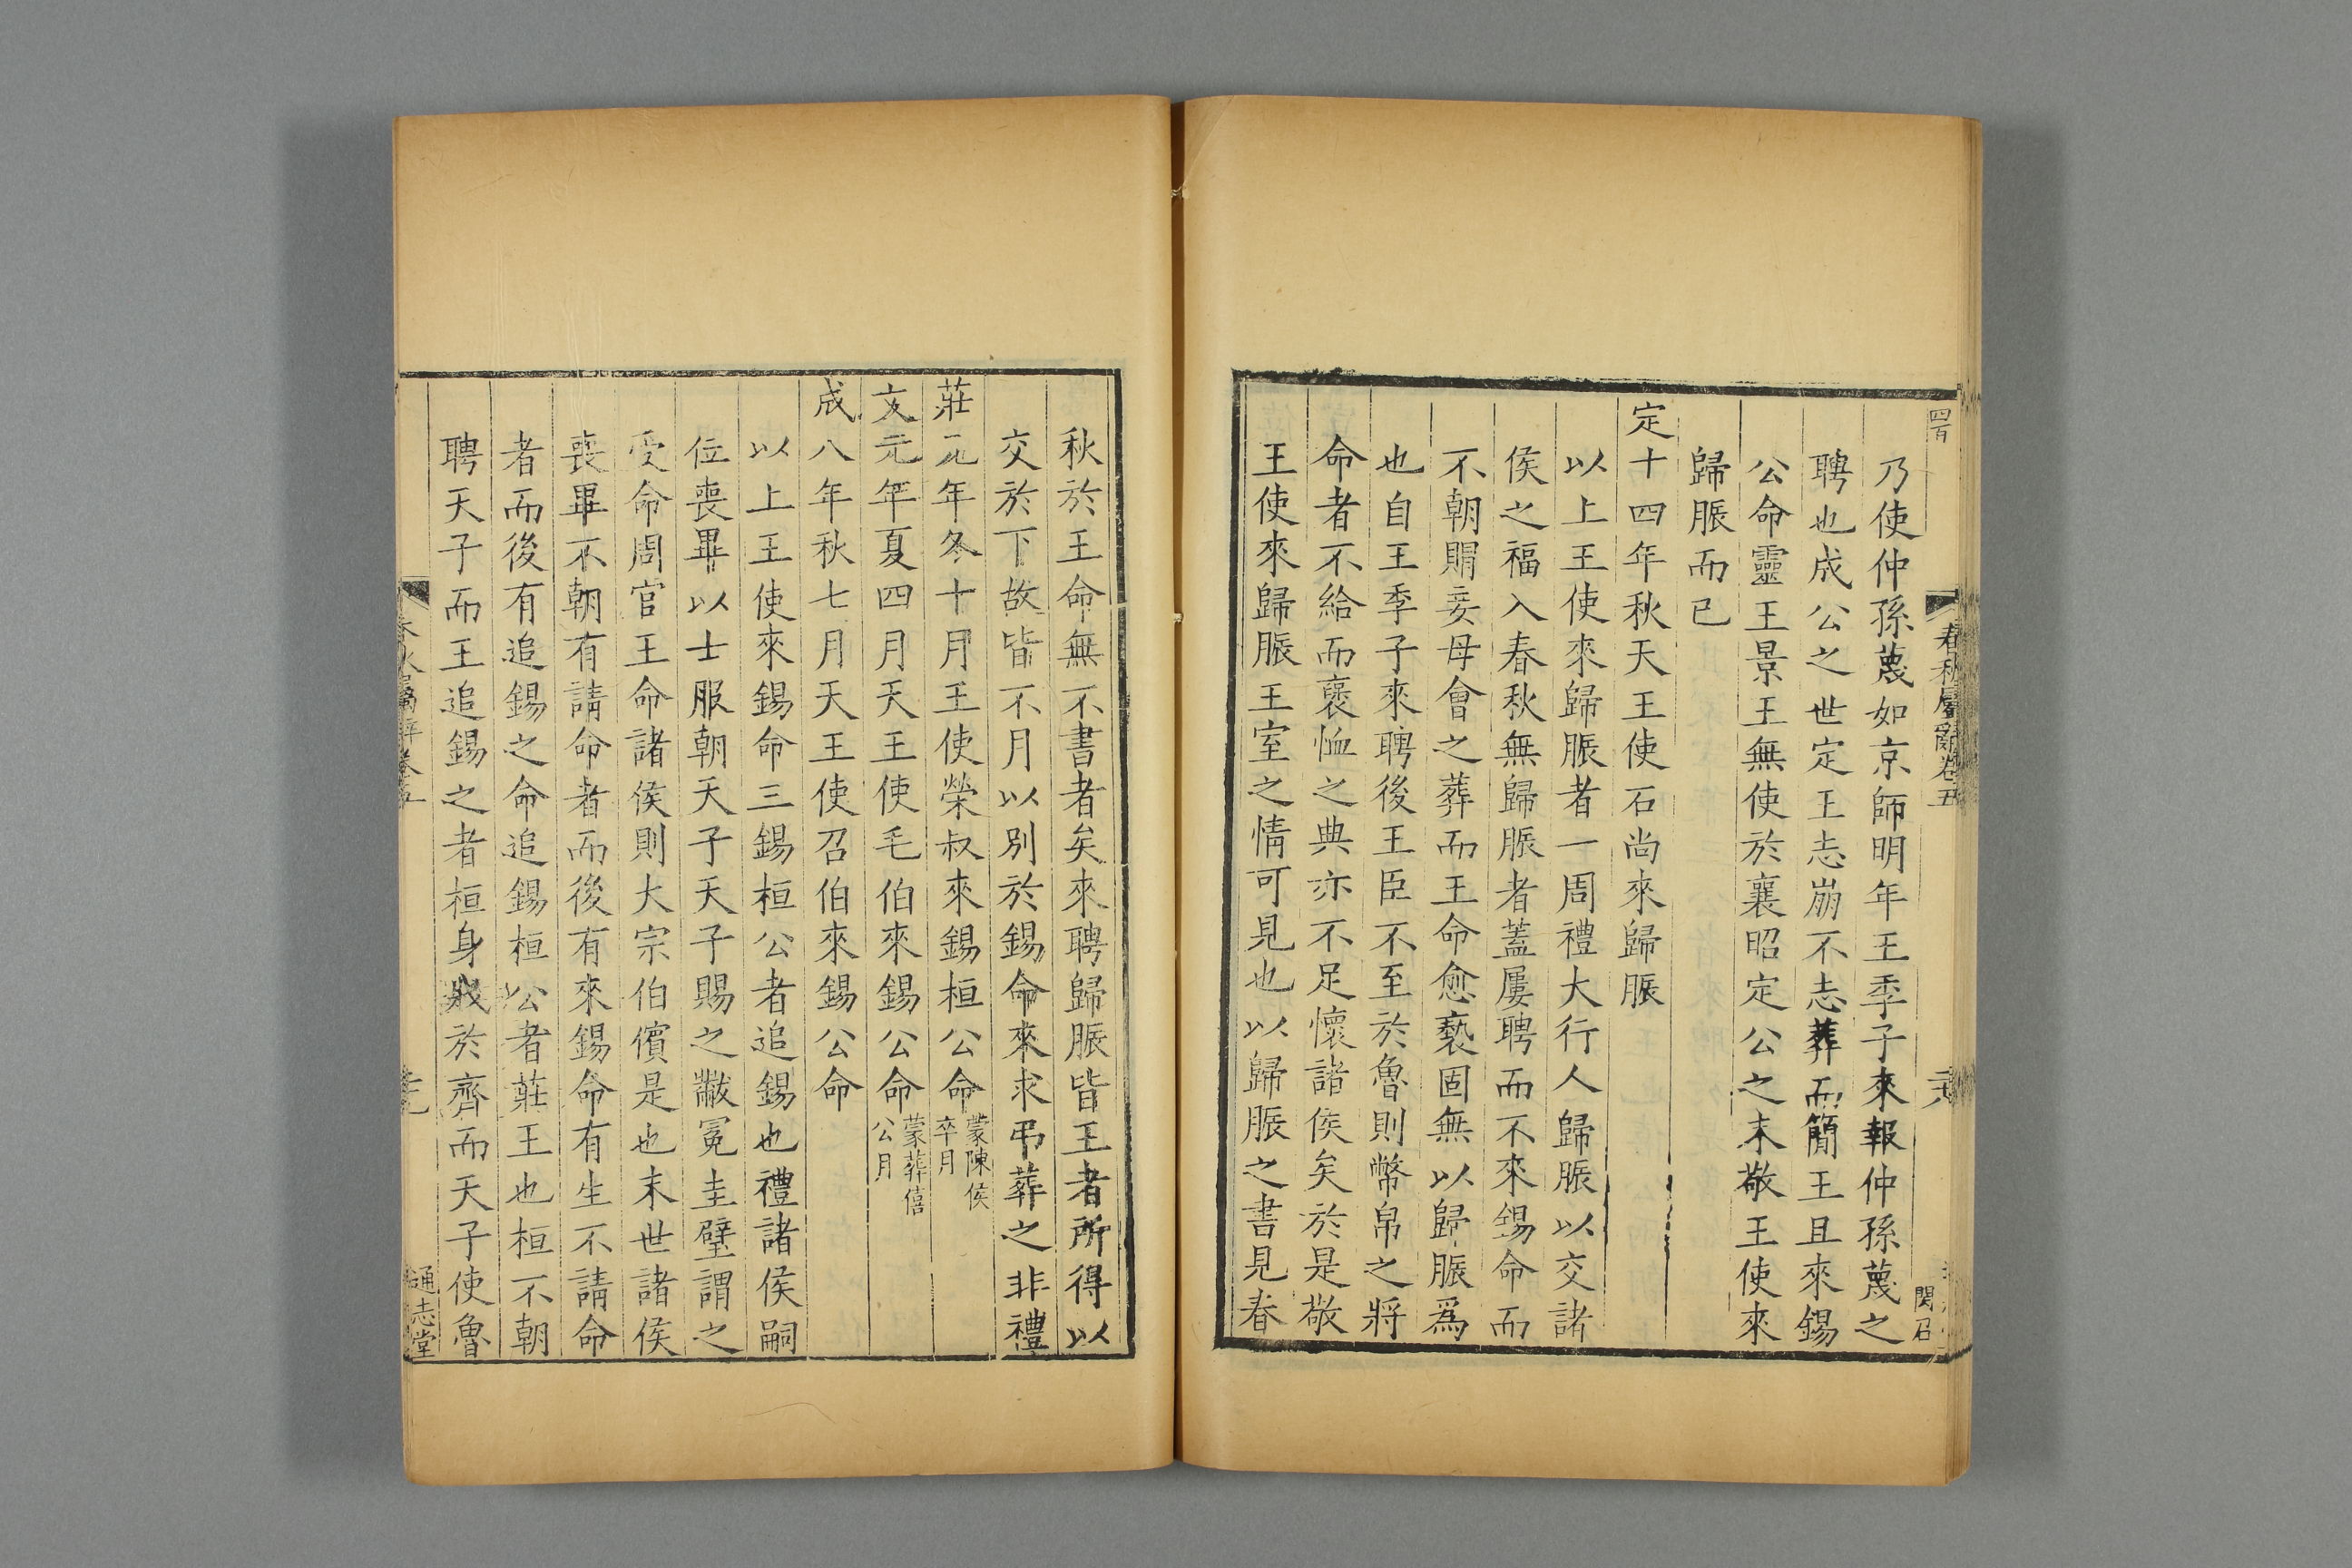 春秋屬辭卷五
乃使仲孫蔑如京師明年王季子來報仲孫蔑之
聘也成公之世定王志崩不志葬而簡王且來錫
公命靈王景王無使於襄昭定公之末敬王使來
歸脤而已
定十四年秋天王使石尚來歸脤
以上王使來歸脤者一周禮大行人歸脤以交諸
侯之福入春秋無歸脤者蓋屢聘而不來錫命而
不朝賵妾母會之葬而王命愈褻固無以歸脤爲
也自王季子來聘後王臣不至於魯則幣帛之將
命者不給而褒恤之典亦不足懷諸侯矣於是敬
王使來歸脤王室之情可見也以歸脤之書見春
秋於王命無不書者矣來聘歸脤皆王者所得以
交於下故皆不月以別於錫命來求弔葬之非禮
莊元年冬十月王使榮叔來錫桓公命蒙陳侯卒月
文元年夏四月天王使毛伯來錫公命蒙葬僖公月
成八年秋七月天王使召伯來錫公命
以上王使來錫命三錫桓公者追錫也禮諸侯嗣
位喪畢以士服朝天子天子賜之黻冕圭璧謂之
受命周官王命諸侯則大宗伯儐是也末世諸侯
喪畢不朝有請命者而後有來錫命有生不請命
者而後有追錫之命追錫桓公者莊王也桓不朝
聘天子而王追錫之者桓身戕於齊而天子使魯
春秋屬辭卷五
通志堂